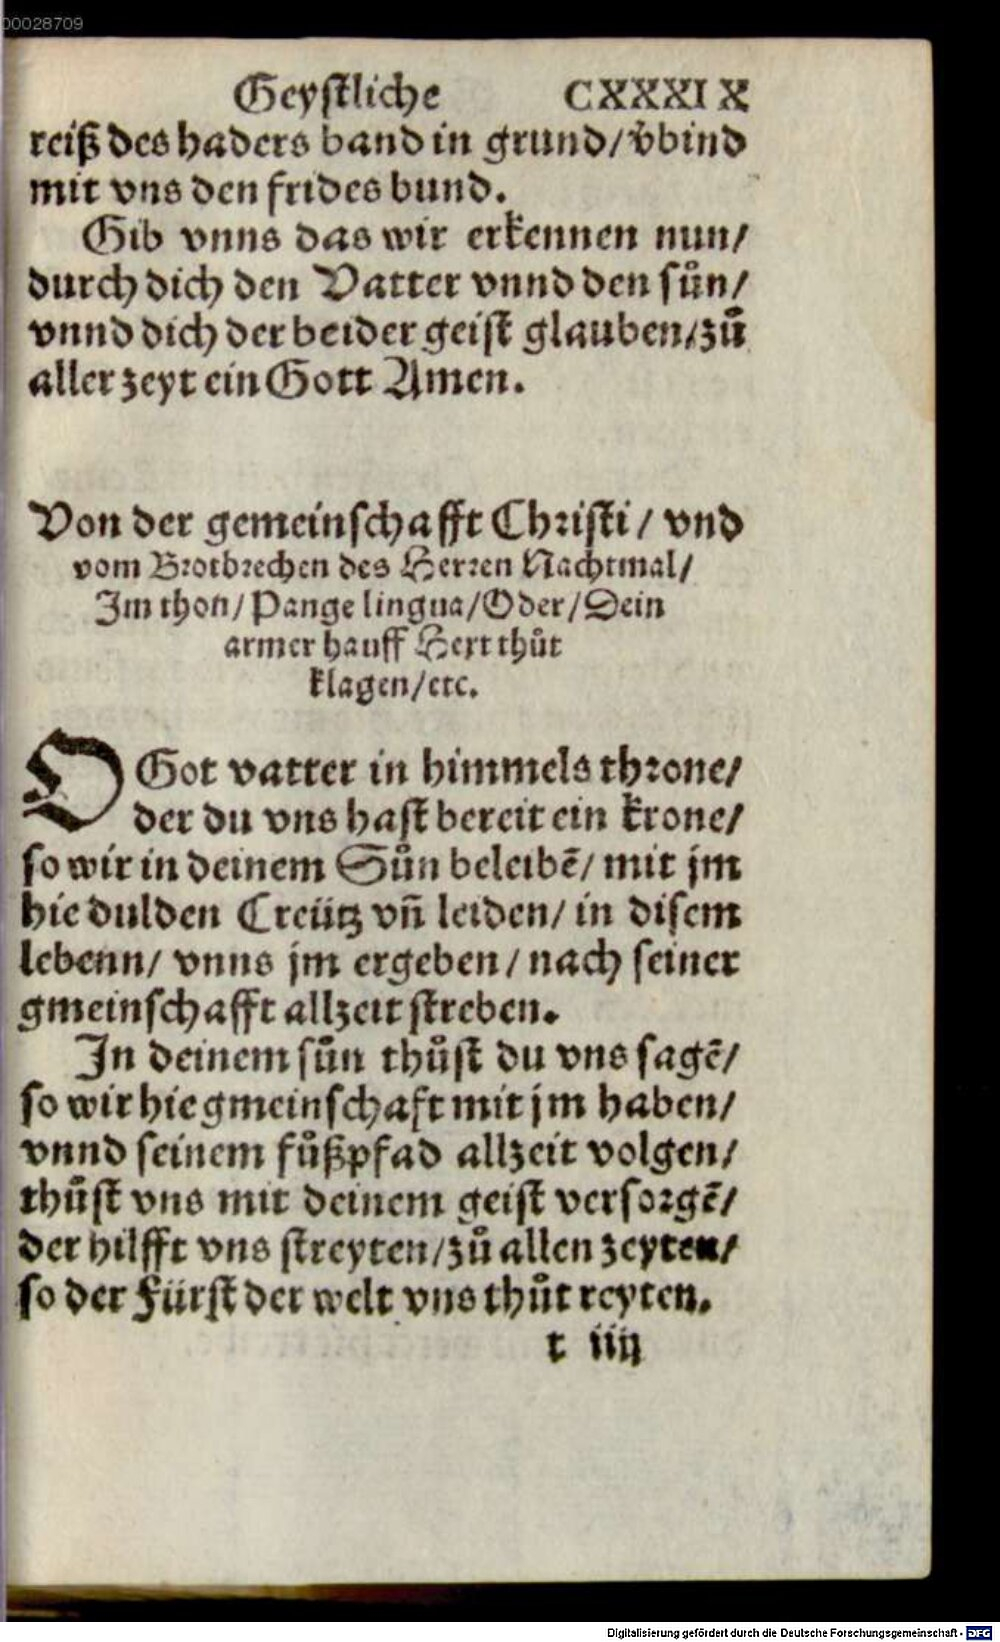 00028709
Geystliche CXXXIX
reiß des haders band in grund/ v̊bind
mit vns den frides bund.
Gib vnns das wir erkennen nun/
durch dich den Vatter vnnd den sůn/
vnnd dich der beider geist glauben/zů
aller zeyt ein Gott Amen.
Von der gemeinschafft Christi/ vnd
vom Brotbrechen des Herren Nachtmal/
Im thon/ Pange lingua/Oder/Dein
armer hauff Herr thůt
klagen/etc.
O Got vatter in himmels throne/
der du vns hast bereit ein krone/
so wir in deinem Sůn beleibē/ mit jm
hie dulden Creütz vñ leiden/ in disem
lebenn/ vnns jm ergeben/ nach seiner
gmeinschafft allzeit streben.
In deinem sůn thůst du vns sagē/
so wir hie gmeinschaft mit jm haben/
vnnd seinem fůßpfad allzeit volgen/
thůst vns mit deinem geist versorgē/
der hilfft vns streyten/zů allen zeyten/
so der Fürst der welt vns thůt reyten.
t iiij
Digitalisierung gefördert durch die Deutsche Forschungsgemeinschaft - DFG